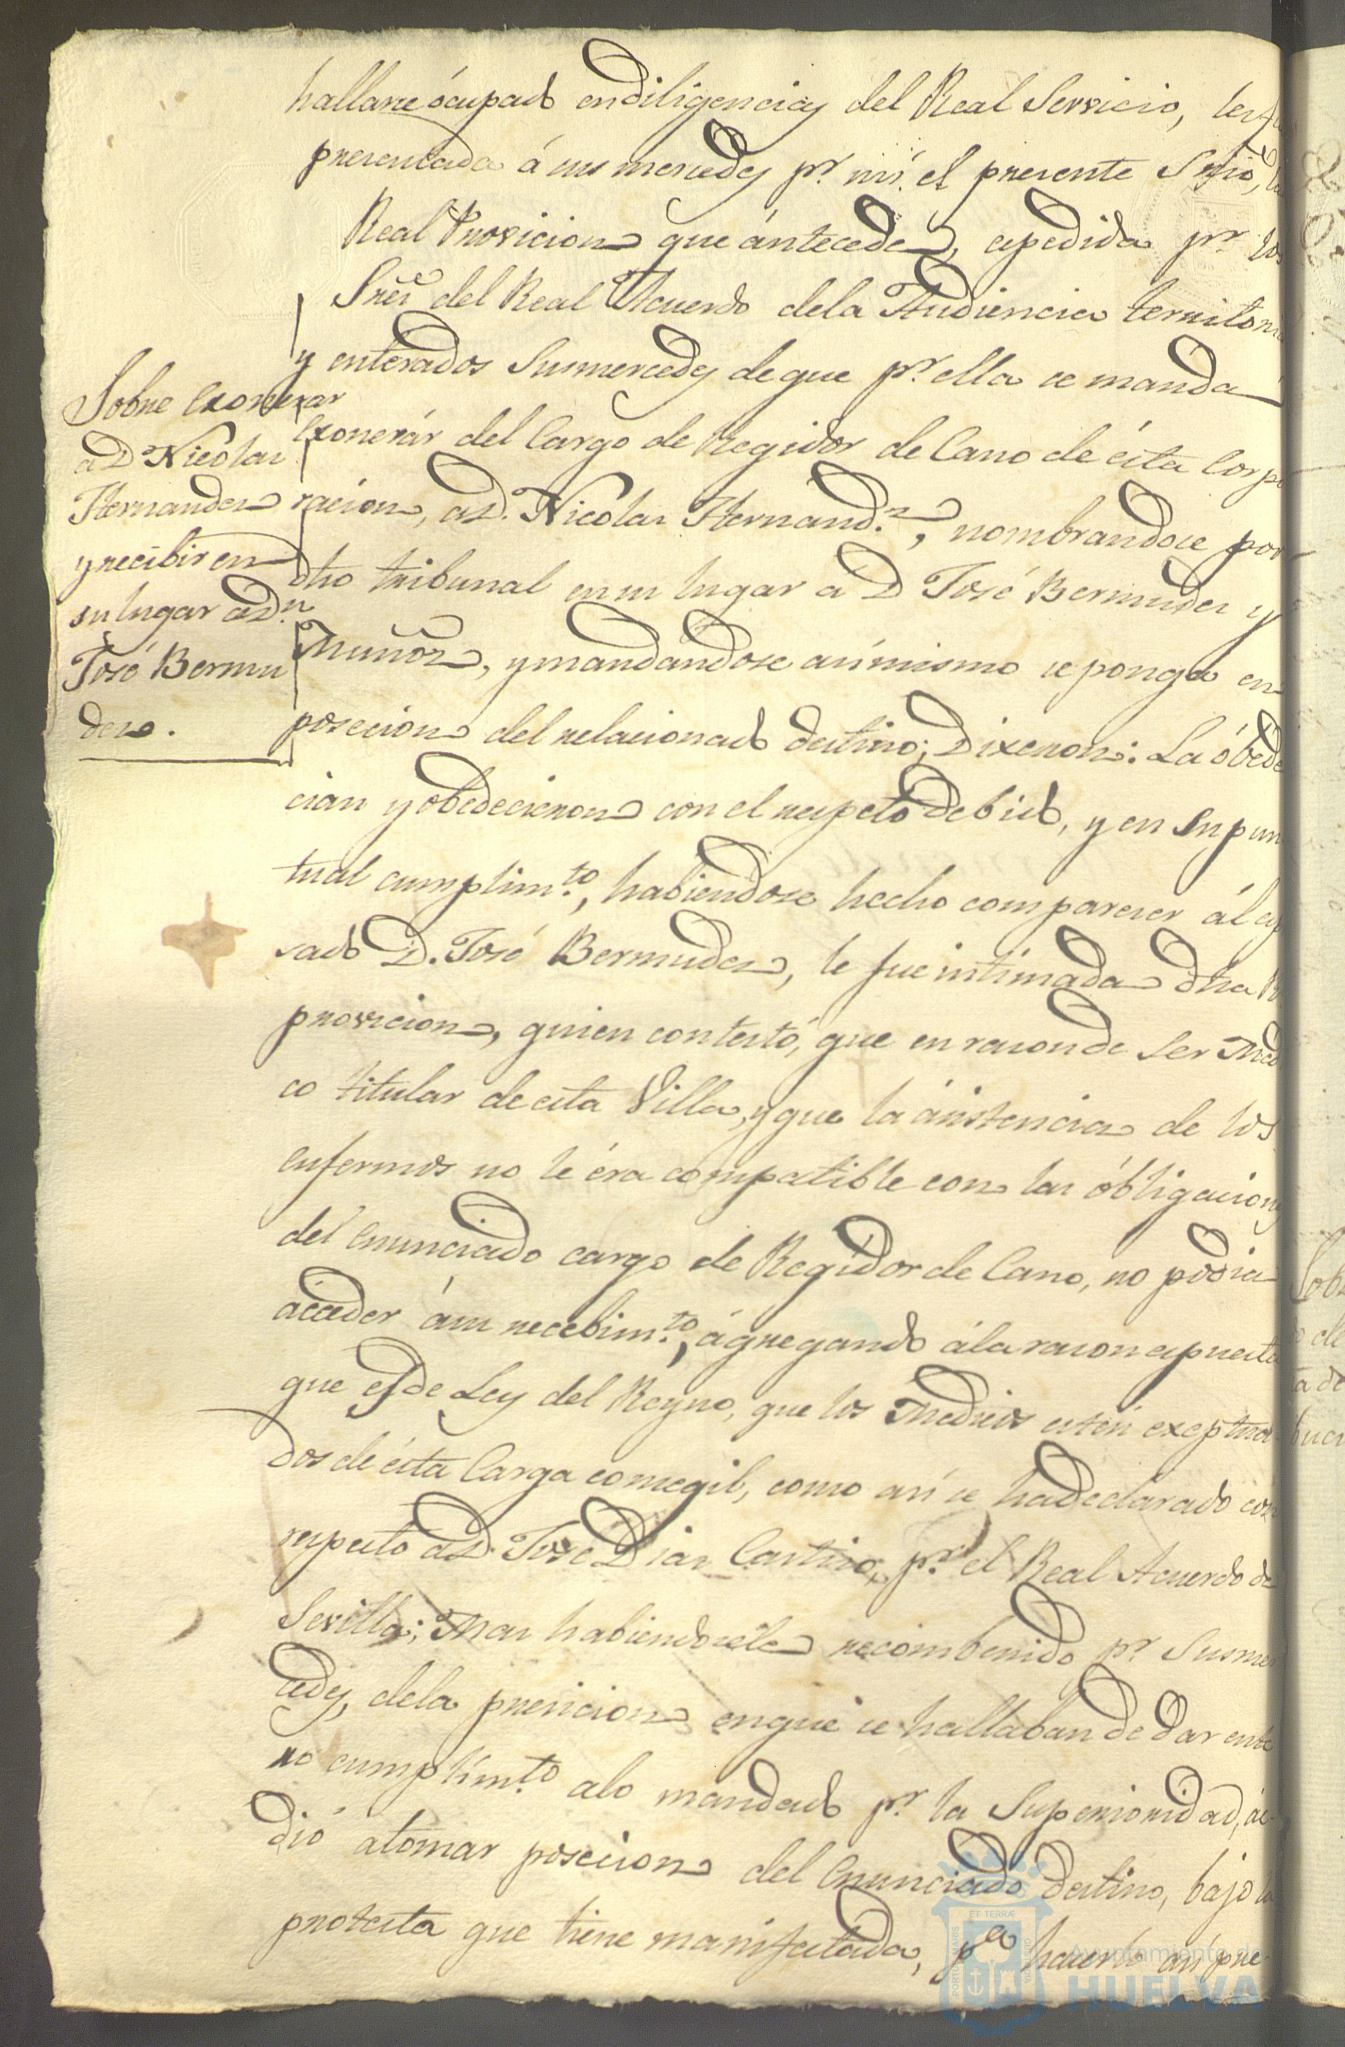 hallarse ócupads en diligencias del Real Servicio, les fu
presentada á sus mercedes pr. mi el presente Sṟio, la
Real Provicion que ántecede, espedida pr. los
Sres. del Real Acuerdo dela Audiencia territoria
y enterados Susmercedes de que pr. ella se mánda
Exonerár del Cargo de Regidor de Cano de ésta Corpo
racion, a D. Nicolas Hernandz., nombrandose por
dho tribunal en su lugar á D José Bermudez y
Muñoz, y mandándose asímismo se ponga en
posecion del relacionads destino; Dixeron: La óbede
cian y obedecieron con el respeto debids, y en su pun
tual cumplimto., habiendose hecho comparecer ál es
sads D. José Bermudez, le fue intimada dha R
provicion, quien contestó, que en razon de ser Médi
co titular de esta Villa, y que la ásistencia de los
enfermos no le éra compatible con las óbligaciones
del enunciado cargo de Regidor de Cano, no podia
acceder á su recebimto., ágregands ála razon espuesta
que es de Ley del Reyno, que los Medicos estén exeptua
dos de ésta Carga consegil, como asi se ha declarado con
respecto a D. José Diaz Castizo, pr. el Real Acuerdo de
Sevilla; Mas habiendosele recombenido pr. Susmer
cedes, dela presicion en que se hallaban de dar ente
ro cumplimto. alo mandads pr. la Superioridad, ác
dió á tomar posecion del enunciado destino, bajo la
protesta que tiene manifestada, pa. hacerlo asi pre
Sobre Exonerar
a D Nicolas
Hernandez
y recibir en
su lugar a Dn.
José Bermu
dez.
Sob
o de
a de
buci
Ayuntamiento de
HUELVA